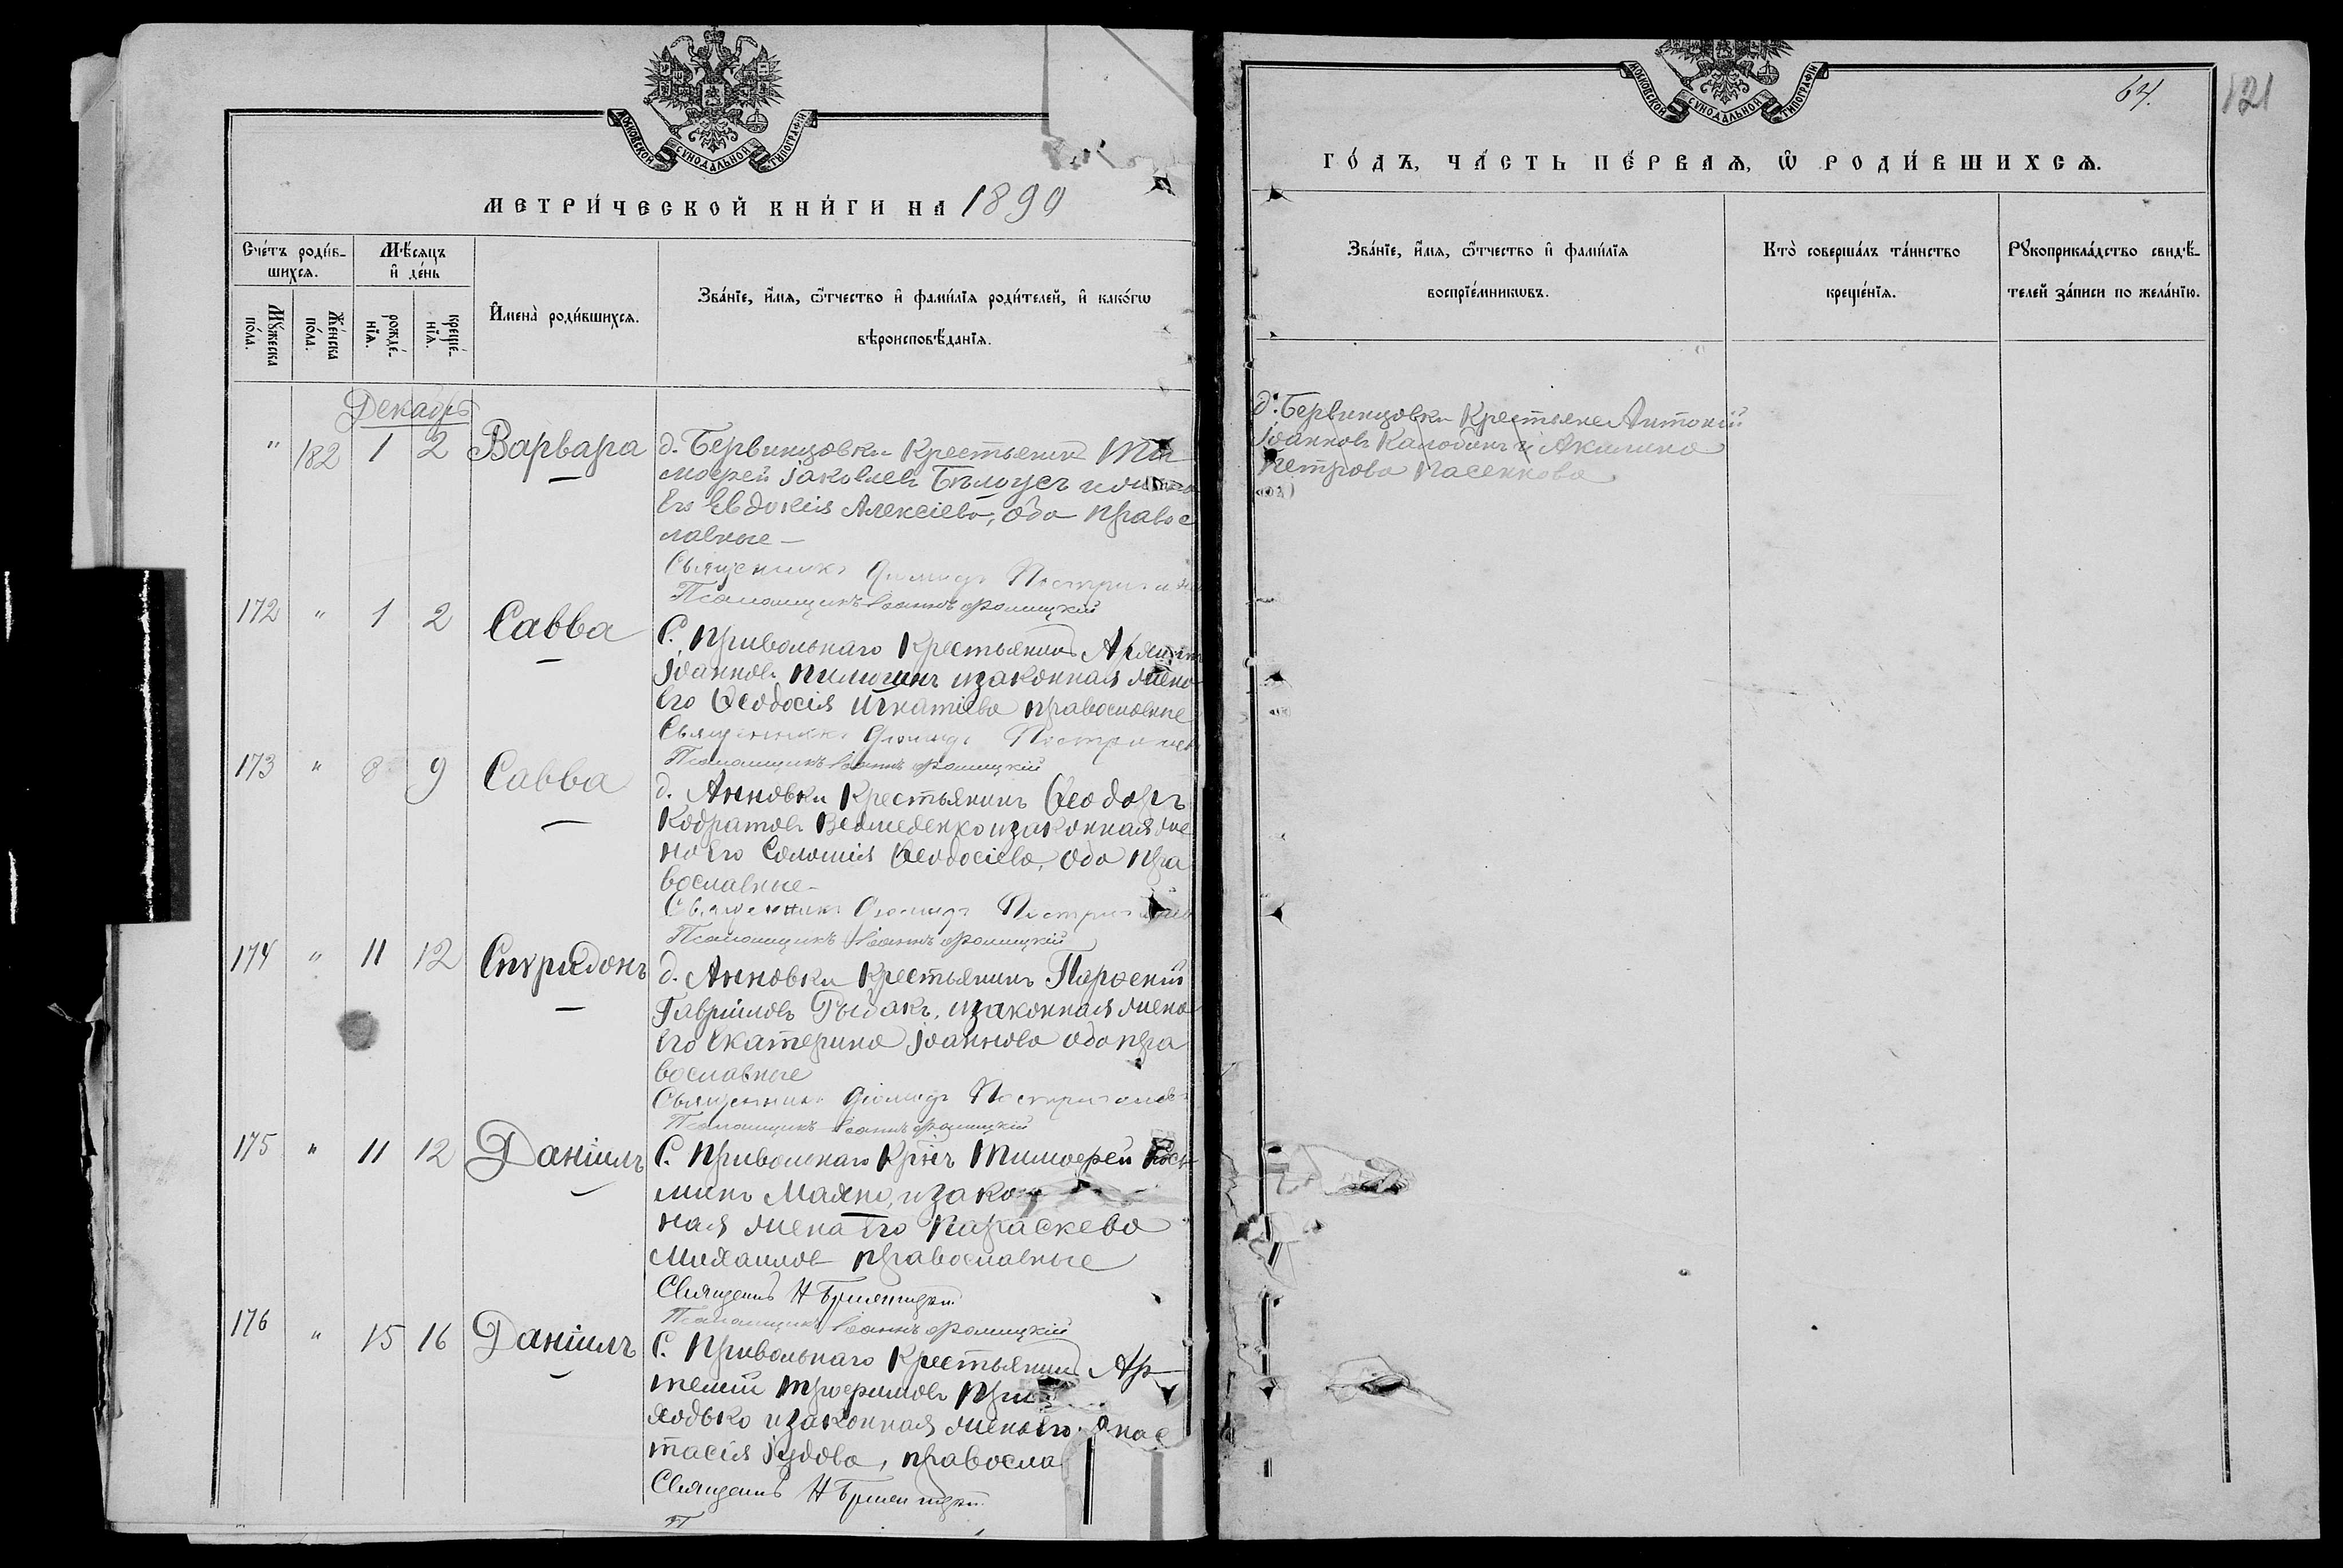 МОСКОВСКОЙ СѴНОДАЛЬНОЙ ТИПОГРАФІИ
МЕТРИ́ЧЕСКОЙ КНИ́ГИ НА 1890
Сче́тъ роди́в-
шихсѧ.
Мꙋ́жеска
по́ла.
Же́нска
по́ла.
Мѣ́сѧцъ
и҆ де́нь
рожде́-
нїѧ.
креще́-
нїѧ.
И҆мена̀ роди́вшихсѧ.
Зва́нїе, и҆́мѧ, ѻ҆́тчество и҆ фами́лїѧ роди́телей, и҆ како́гѡ
вѣроисповѣ́данїѧ.
Декабрь
" 182 1 2 Варвара
д. Бервинцовки Крестьянинъ Ти
мофей Іаковлевъ Бѣлоусъ
Его Евдокія Алексіева, оба правос
лавные
Священникъ Діомидъ
Псаломщикъ Іоаннъ
172 " 1 2 Савва
С. Привольнаго Крестьянинъ
Іоанновъ Пилюгинъ и законная жена
Его Ѳеодосія Игнатіева православные
Священникъ Діомидъ
Псаломщикъ Іоаннъ
173 " 8 9 Савва
д. Анновки Крестьянинъ Ѳеодоръ
Кодратовъ Ведмеденко и законная же
на Его Соломія Ѳеодосіева, оба пра
вославные
Священникъ Діомидъ
Псаломщикъ Іоаннъ
174 " 11 12 Спиридонъ
д. Анновки Крестьянинъ Парѳеній
Гавріиловъ Рыбакъ, и законная жена
Его Екатерина Іоаннова оба пра
вославные
Священникъ Діомидъ
Псаломщикъ Іоаннъ
175 " 11 12 Даніилъ
С. Привольнаго Кр̃нъ Тимофей
и зако
ная жена Его Параскева
Михаилов православные
Священъ Н
Псаломщикъ Іоаннъ
176 " 15 16 Даніилъ
С. Привольнаго Крестьянинъ Ар
темій Трофимовъ При
ходько и законная жена Его Анас
тасія Іудова, правосла
Священъ Н
П
МОСКОВСКОЙ СѴНОДАЛЬНОЙ ТИПОГРАФІИ
64.
121
ГО́ДЪ, ЧА́СТЬ ПЕ́РВАѦ, Ѡ҆ РОДИ́ВШИХСѦ.
Зва́нїе, и҆́мѧ, ѻ҆́тчество и҆ фами́лїѧ
воспрїе́мникѡвъ.
Кто̀ соверша́лъ та́инство
креще́нїѧ.
Рꙋкоприкла́дство свидѣ́-
телей за́писи по жела́нїю.
д. Бервинцовки Крестьяне Антоній
Іоанновъ и Акилина
Петрова Пасенкова